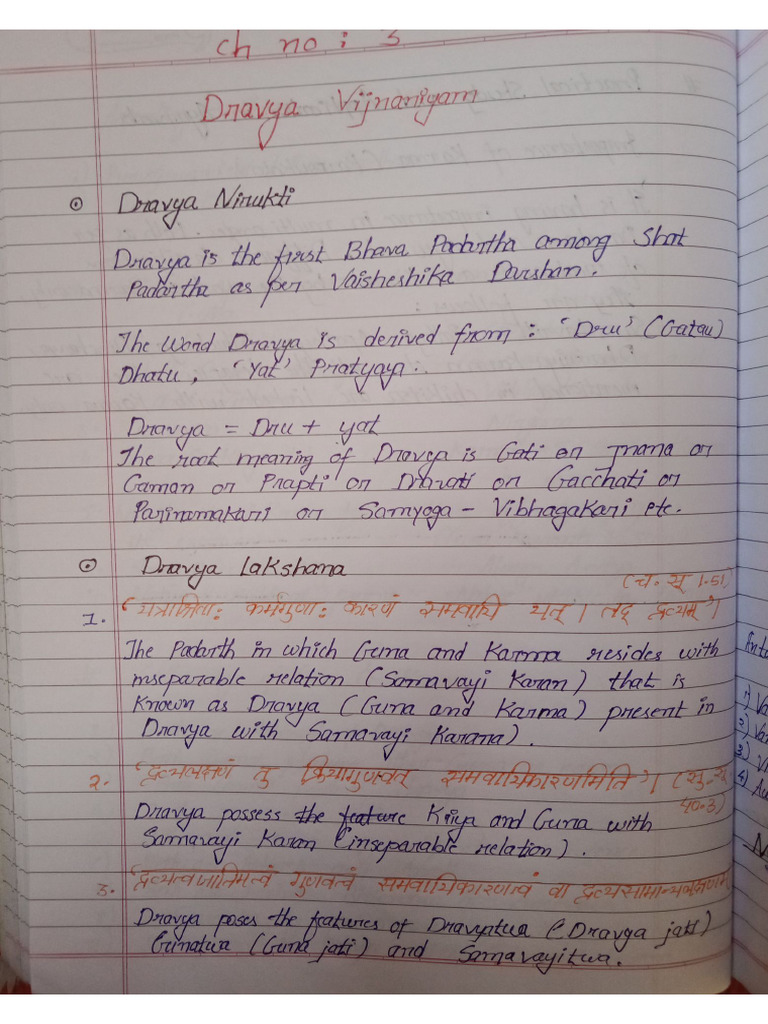 ch no : 3
Dravya Vijnaniyam
Dravya Nirukti
Dravya is the first Bhava Padartha among Shat
Padartha as per Vaisheshika Darshan.
The Word Dravya is derived from : 'Dru' (Gatau)
Dhatu, 'Yat' Pratyaya.
Dravya = Dru + yat
The root meaning of Dravya is Gati or Jnana or
Gaman or Prapti or Dravati or Gacchati or
Parinamakari or Samyoga - Vibhagakari etc.
Dravya Lakshana
(च. सू 1.51)
1. "यत्राश्रिताः कर्मगुणाः कारणं समवायि यत्। तद् द्रव्यम्"।
The Padarth in which Guna and Karma resides with
inseparable relation (Samavayi Karan) that is
known as Dravya (Guna and Karma) present in
Dravya with Samavayi Karana).
2. "द्रव्यलक्षणं तु क्रियागुणवत् समवायिकारणमिति"। (सु. सू
40.3)
Dravya possess the feature Kriya and Guna with
Samavayi Karan (inseparable relation).
3. "द्रव्यत्वजातिमत्वं गुणवत्वं समवायिकारणत्वं वा द्रव्यसामान्यलक्षणम्
Dravya poses the features of Dravyatua (Dravya jati)
Gunatua (Guna jati) and Samavayitwa.
1)
2)
3)
4)